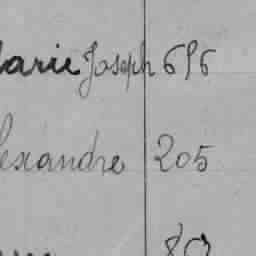 Marie Joseph 696
lexandre 205
80